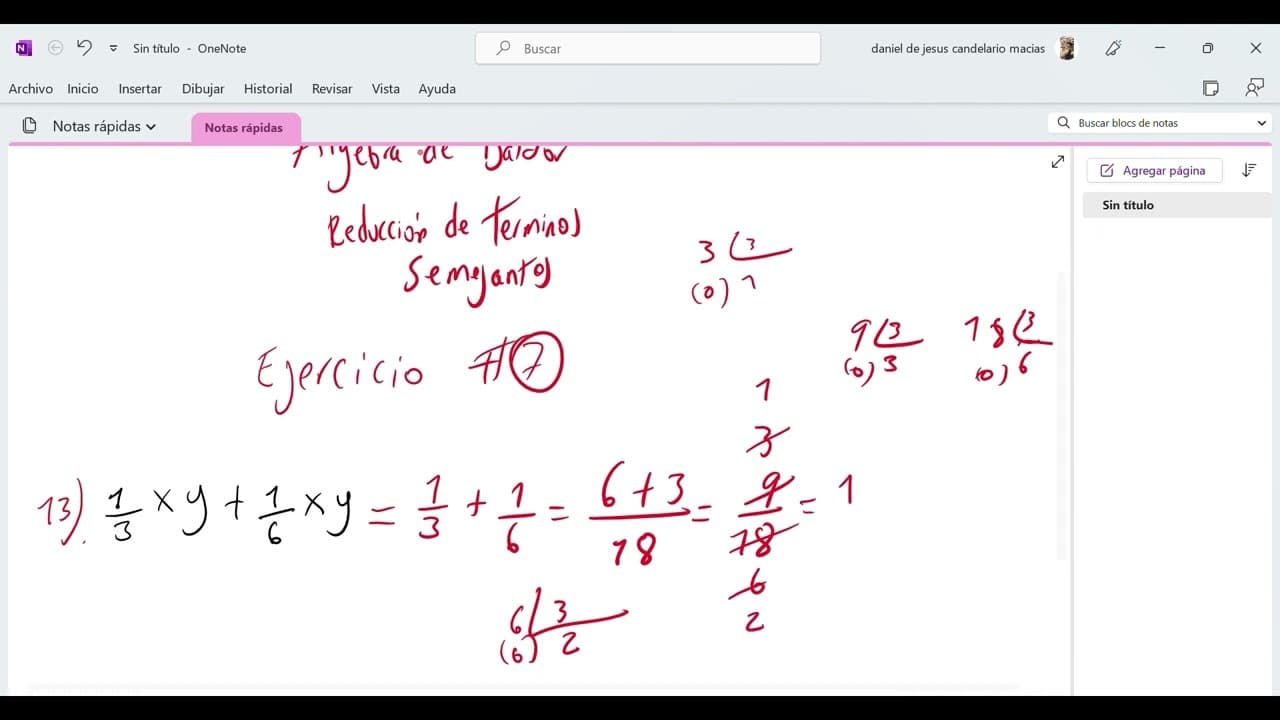 Sin título - OneNote
Buscar
daniel de jesus candelario macias
Archivo Inicio Insertar Dibujar Historial Revisar Vista Ayuda
Notas rápidas
Notas rápidas
Buscar blocs de notas
Agregar página
Sin título
Algebra de Baldor
Reducción de Terminos
Semejantes
3 (3
(0) 1
9 (3 18 (3
(0) 3 (0) 6
Ejercicio #7
1
3
13). 1/3 xy + 1/6 xy = 1/3 + 1/6 = 6+3/18 = 9/18 = 1
6
2
6 / 3
(6) 2